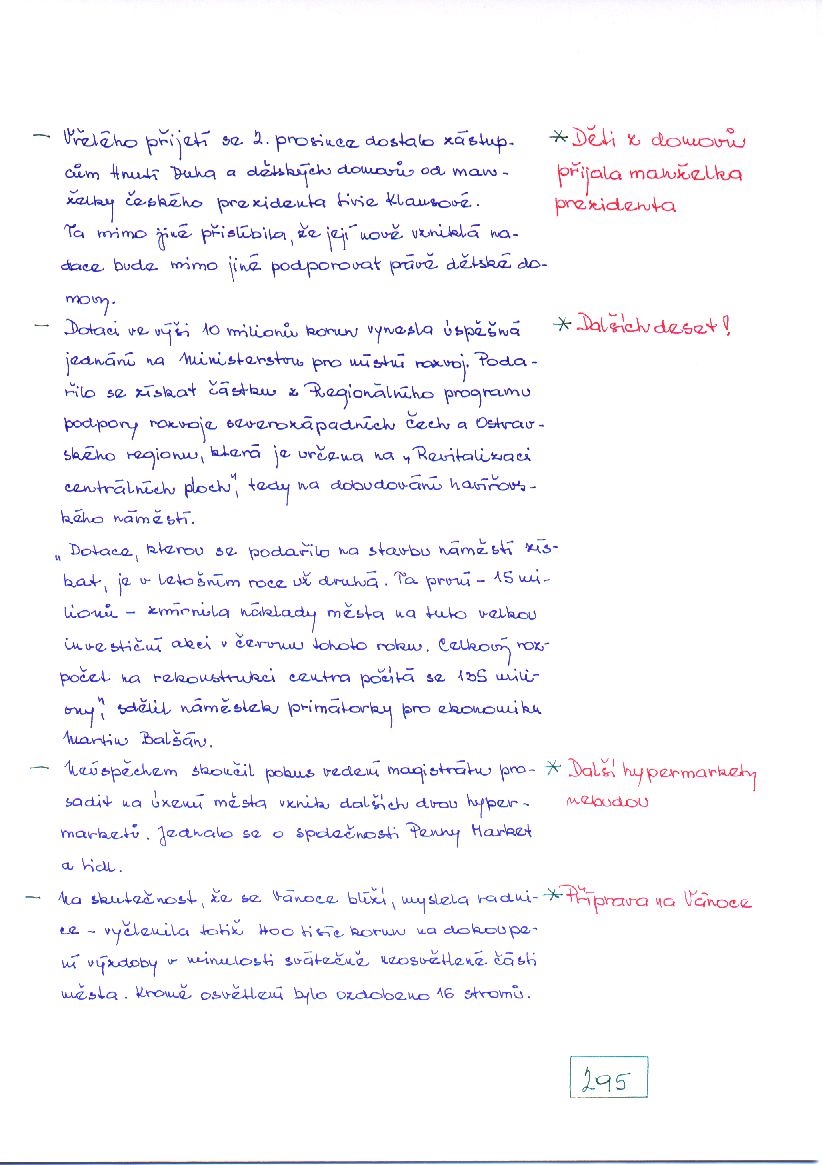 – Vřelého přijetí se 2. prosince dostalo zástup-
cům Hnutí Duha a dětských domovů od man-
želky českého prezidenta Livie Klausové.
Ta mimo jiné přislíbila, že její nově vzniklá na-
dace bude mimo jiné podporovat právě dětské do-
movy.
* Děti z domovů
přijala manželka
prezidenta
– Dotaci ve výši 10 milionů korun vynesla úspěšná
jednání na Ministerstvu pro místní rozvoj. Poda-
řilo se získat částku z Regionálního programu
podpory rozvoje severozápadních Čech a Ostrav-
ského regionu, která je určena na „Revitalizaci
centrálních ploch", tedy na dobudování havířovs-
kého náměstí.
* Dalších deset!
„Dotace, kterou se podařilo na stavbu náměstí zís-
kat, je v letošním roce už druhá. Ta první – 15 mi-
lionů – zmírnila náklady města na tuto velkou
investiční akci v červnu tohoto roku. Celkový roz-
počet na rekonstrukci centra počítá se 135 mili-
ony", sdělil náměstek primátorky pro ekonomiku
Martin Balšán.
– Neúspěchem skončil pokus vedení magistrátu pro-
sadit na území města vznik dalších dvou hyper-
marketů. Jednalo se o společnosti Penny Market
a Lidl.
* Další hypermarkety
nebudou
– Na skutečnost, že se Vánoce blíží, myslela radni-
ce – vyčlenila totiž 400 tisíc korun na dokoupe-
ní výzdoby v minulosti svátečně neosvětlené části
města. Kromě osvětlení bylo ozdobeno 16 stromů.
* Příprava na Vánoce
295